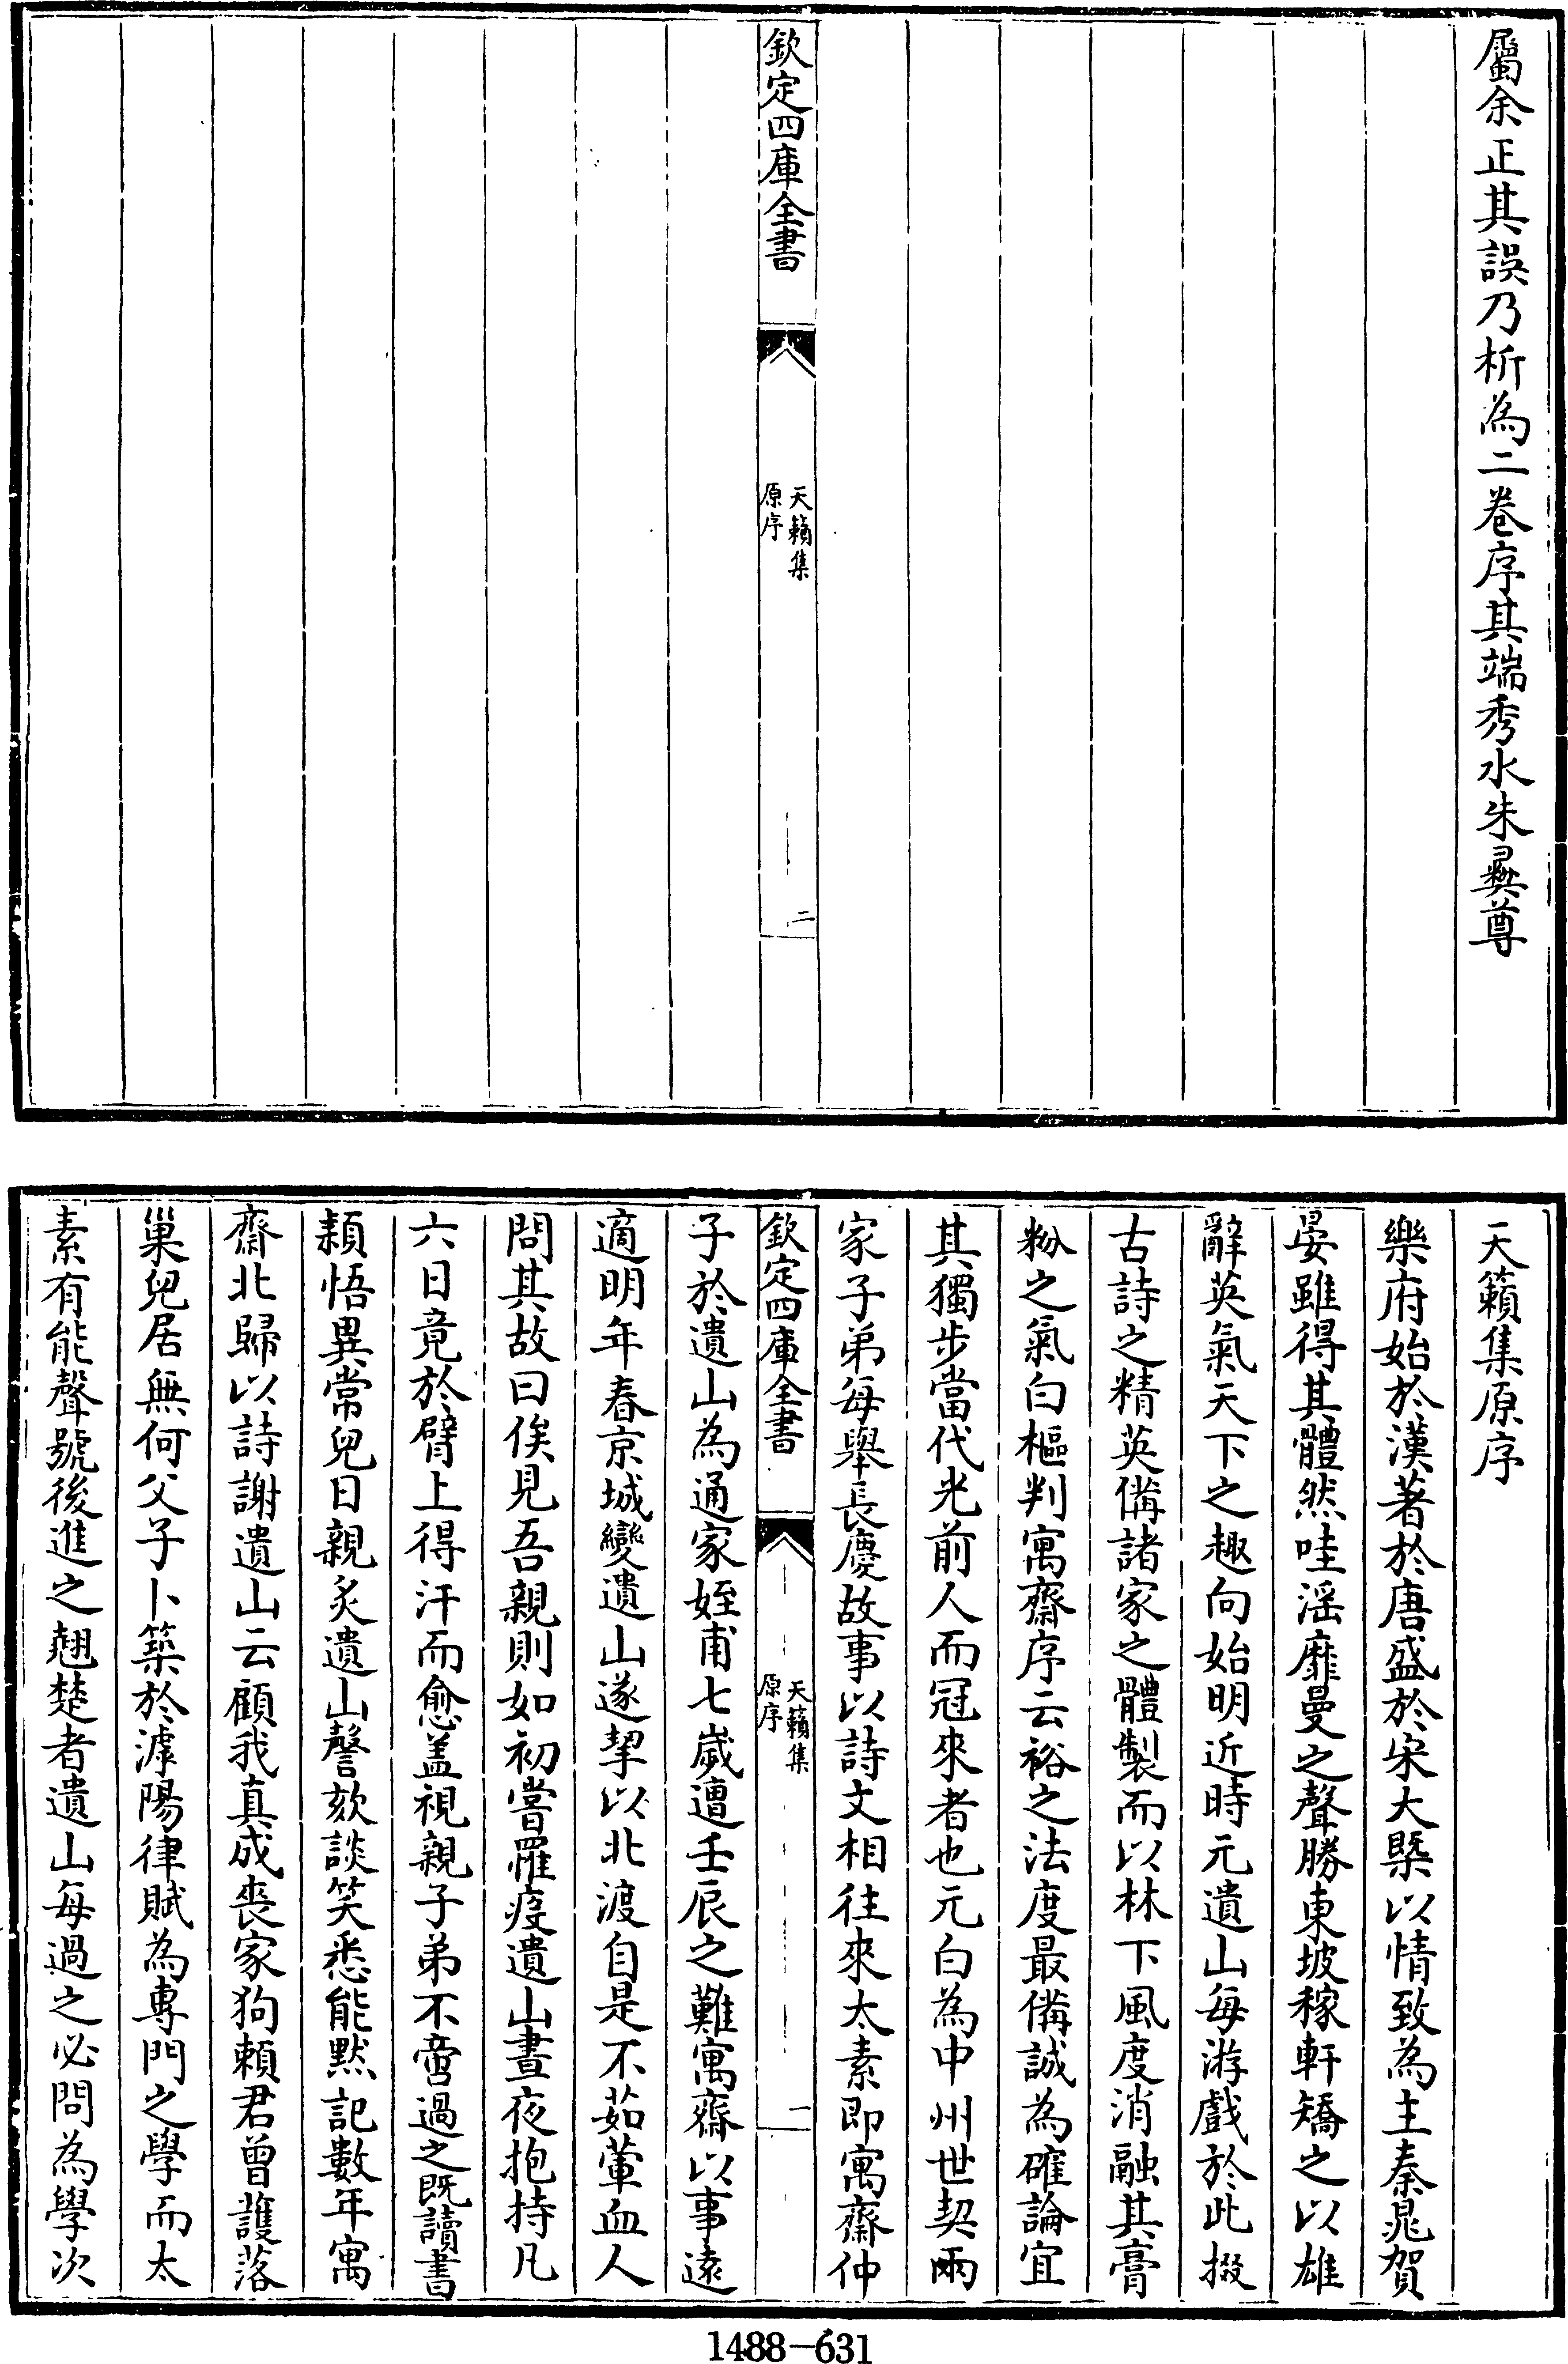 屬余正其誤乃析為二卷序其端秀水朱彛尊
欽定四庫全書
天籟集
原序
二
天籟集原序
樂府始於漢著於唐盛於宋大槩以情致為主秦晁賀
晏雖得其體然哇滛靡曼之聲勝東坡稼軒矯之以雄
辭英氣天下之趣向始明近時元遺山每游戲於此掇
古詩之精英備諸家之體製而以林下風度消融其膏
粉之氣白樞判寓齋序云裕之法度最備誠為確論宜
其獨步當代光前人而冠來者也元白為中州世契兩
家子弟每舉長慶故事以詩文相往來太素即寓齋仲
欽定四庫全書
天籟集
原序
一
子於遺山為通家姪甫七嵗遭壬辰之難寓齋以事遠
適明年春京城變遺山遂挈以北渡自是不茹葷血人
問其故曰俟見吾親則如初嘗罹疫遺山晝夜抱持凡
六日竟於臂上得汗而愈盖視親子弟不啻過之既讀書
頴悟異常兒日親炙遺山謦欬談笑悉能默記數年寓
齋北歸以詩謝遺山云顧我真成喪家狗賴君曾護落
巢兒居無何父子卜築於滹陽律賦為專門之學而太
素有能聲號後進之翹楚者遺山每過之必問為學次
1488-631